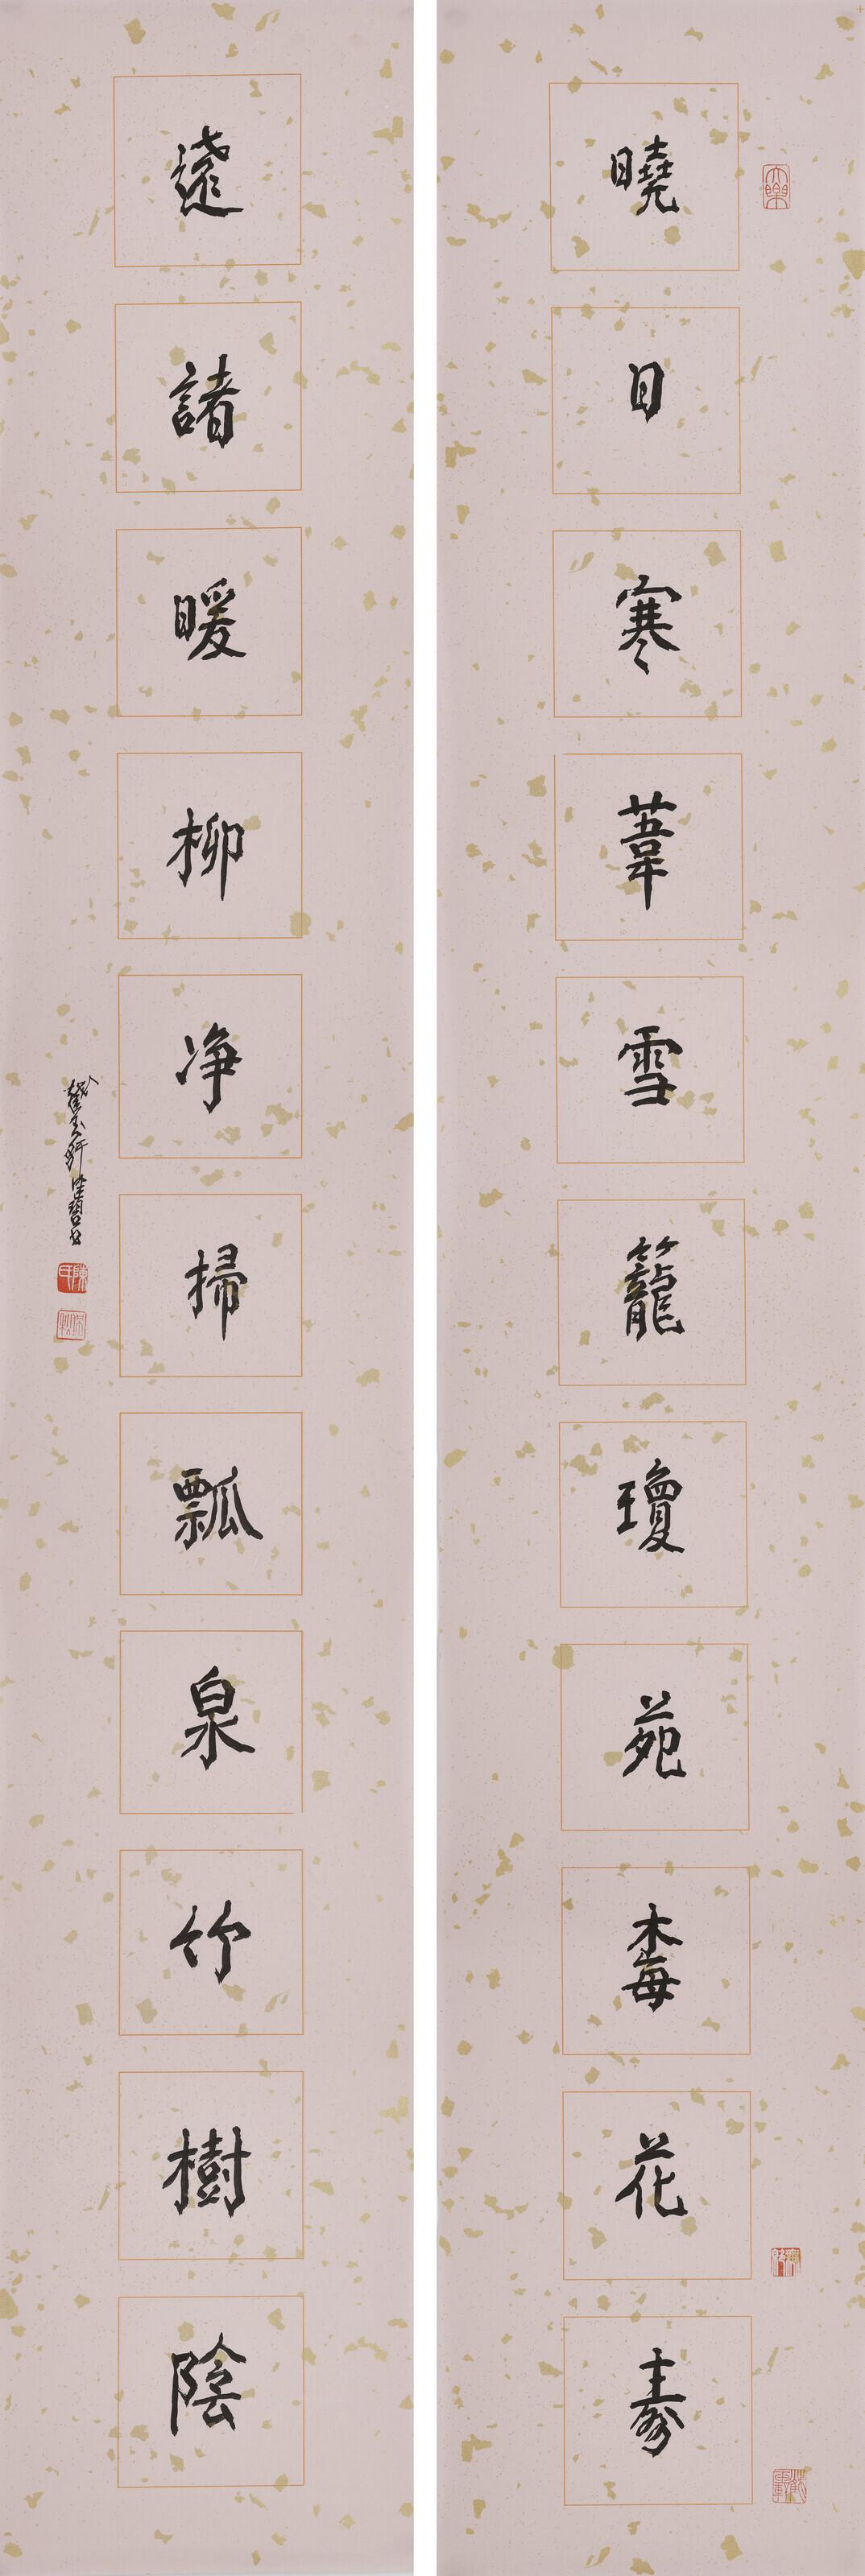 曉日寒葦雪籠瓊苑梅花壽
遠諸暖柳净掃瓢泉竹樹陰